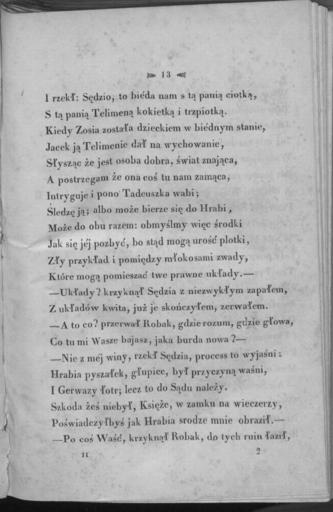 13
I rzekł: Sędzio, to biéda nam s tą panią ciotką,
S tą panią Telimeną kokietką i trzpiotką.
Kiedy Zosia została dzieckiem w biédnym stanie,
Jacek ją Telimenie dał na wychowanie,
Słysząc że jest osoba dobra, świat znająca,
A postrzegam że ona coś tu nam zamąca,
Intryguje i pono Tadeuszka wabi;
Śledzę ją; albo może bierze się do Hrabi,
Może do obu razem: obmyślmy więc środki
Jak się jéj pozbyć, bo stąd mogą urość plotki,
Zły przykład i pomiędzy młokosami zwady,
Które mogą pomieszać twe prawne układy.—
—Układy? krzyknął Sędzia z niezwykłym zapałem,
Z układów kwita, już je skończyłem, zerwałem.
—A to co? przerwał Robak, gdzie rozum, gdzie głowa,
Co tu mi Wasze bajasz, jaka burda nowa?—
—Nie z méj winy, rzekł Sędzia, process to wyjaśni:
Hrabia pyszałek, głupiec, był przyczyną waśni,
I Gerwazy łotr; lecz to do Sądu należy.
Szkoda żeś niebył, Księże, w zamku na wieczerzy,
Poświadczyłbyś jak Hrabia srodze mnie obraził.—
—Po coś Waść, krzyknął Robak, do tych ruin łaził,
II 2